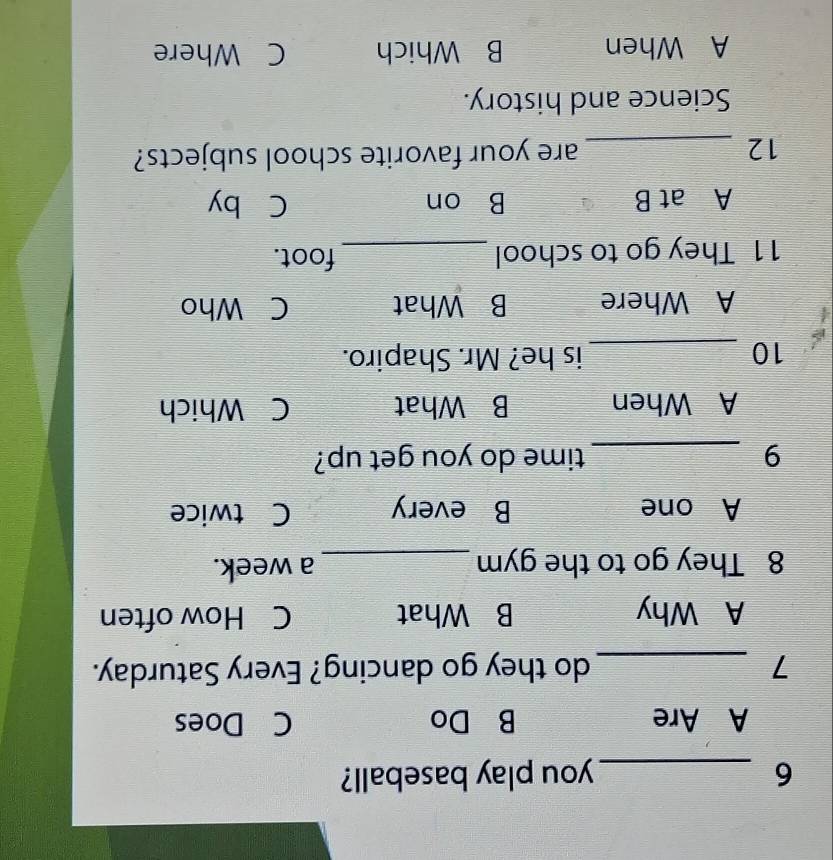 6 ________ you play baseball?
A Are B Do C Does
7 ________ do they go dancing? Every Saturday.
A Why B What C How often
8 They go to the gym ________ a week.
A one B every C twice
9 ________ time do you get up?
A When B What C Which
10 ________ is he? Mr. Shapiro.
A Where B What C Who
11 They go to school ________ foot.
A at B B on C by
12 ________ are your favorite school subjects?
Science and history.
A When B Which C Where